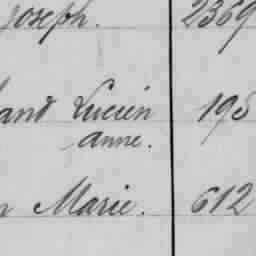 Joseph. 2369
and Lucien 195
Anne.
Marie. 612